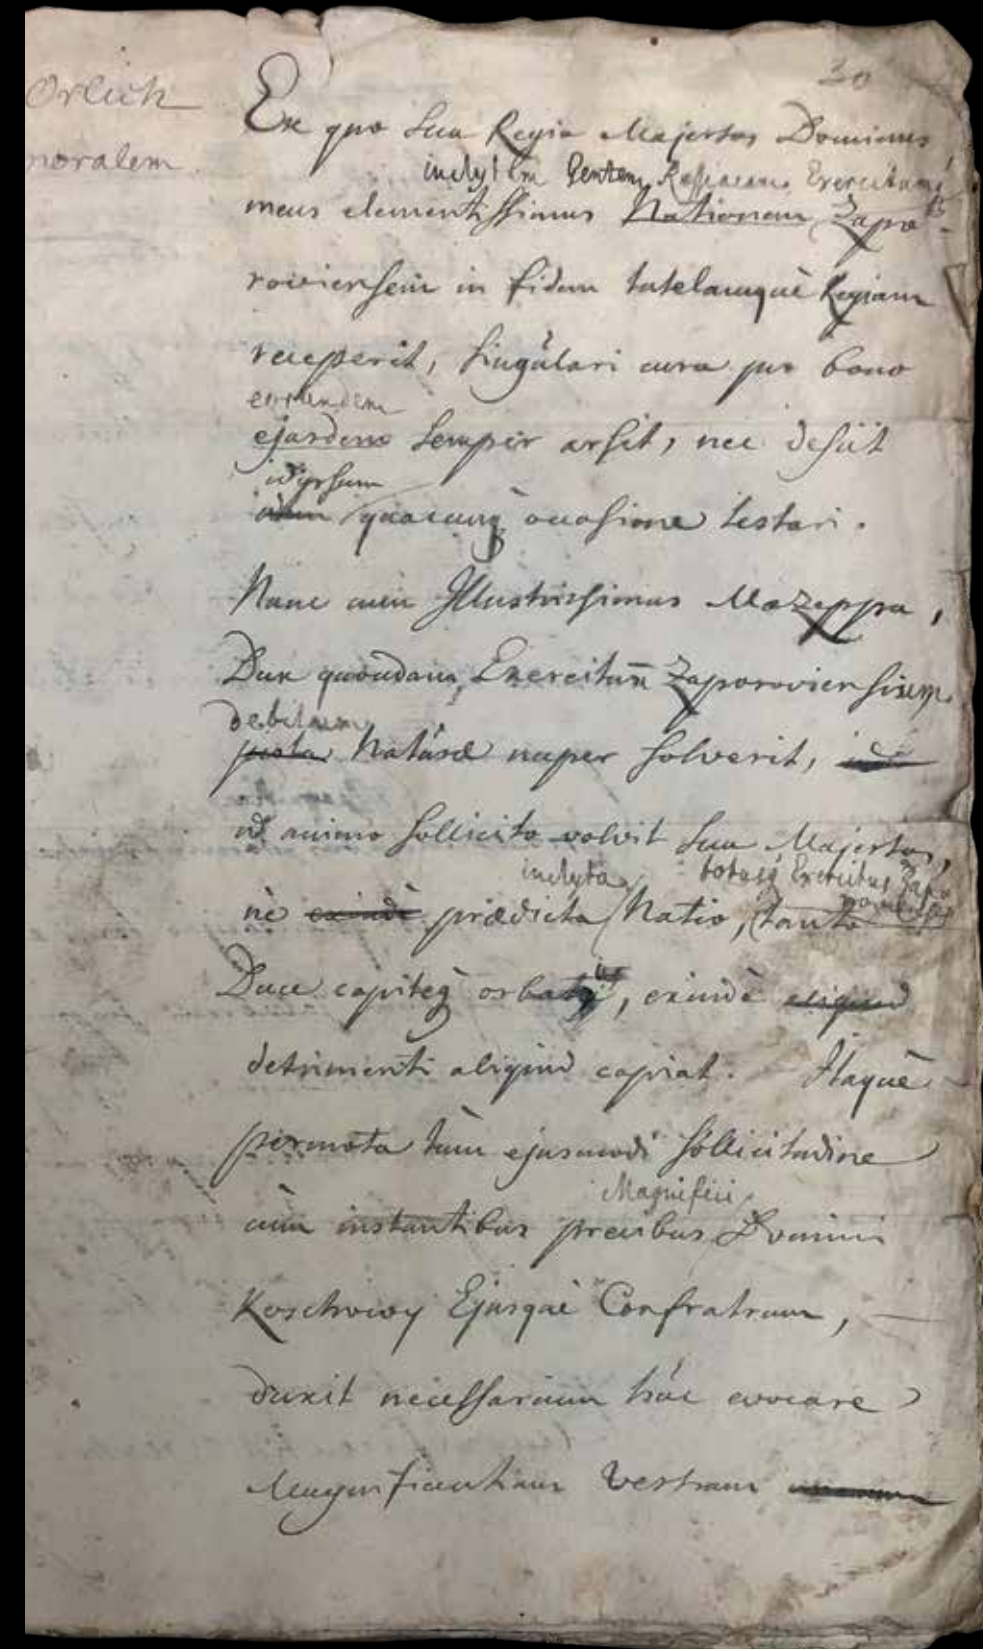 30
Orlich
noralem
Ex quo Sua Regia Majestas Dominus
inclytam Gentem Rossiacam Exercitumq
meus clementissimus Nationem Zapo-
roviensem in fidem tutelamque Regiam
receperit, singulari cura pro bono
eorundem
ejusdem semper arsit, nec desiit
idipsum
quacunq occasione testari.
Nunc cum Illustrissimus Mazeppa,
Dux quondam Exercitus Zaporoviensium,
debitum
justa Naturæ nuper solverit,
id animo sollicito volvit Sua Majestas,
inclyta totusq Exercitus Zapo
roviensis
nè exinde prædicta Natio, tanto
Duce capiteq orbatus, exinde aliquid
detrimenti aliquid capiat. Itaque
permota tùm ejusmodi sollicitudine
Magnifici
cùm instantibus precibus Domini
Koschowy Ejusque Confratrum,
duxit necessarium hùc evocare
Magnificentiam Vestram